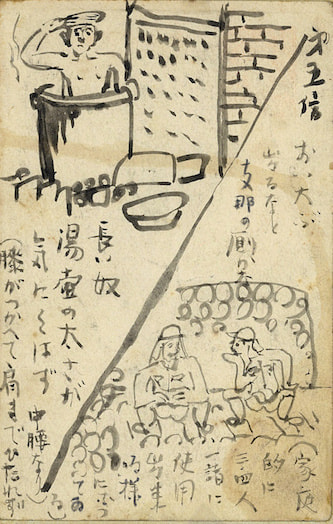 第五信
支那の厠
(家庭
的に
三四人
一諸に
使用
出来
る様
になつ
てゐ
る)
長い奴
湯壷の太さが
気にくはず
中腰なり
(膝がつかへて肩までひたれず)